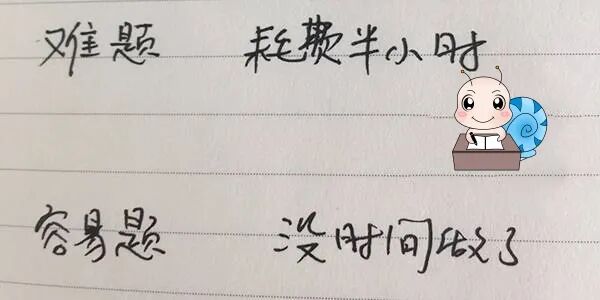 难题 耗费半小时
容易题 没时间做了